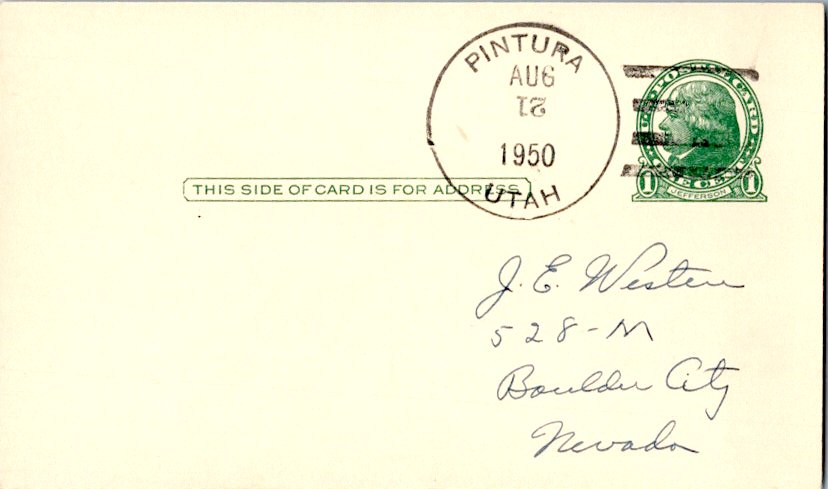 PINTURA
AUG
21
1950
UTAH
U.S. POSTAL CARD
ONE CENT
1 JEFFERSON 1
THIS SIDE OF CARD IS FOR ADDRESS
J. E. Western
528-M
Boulder City
Nevada